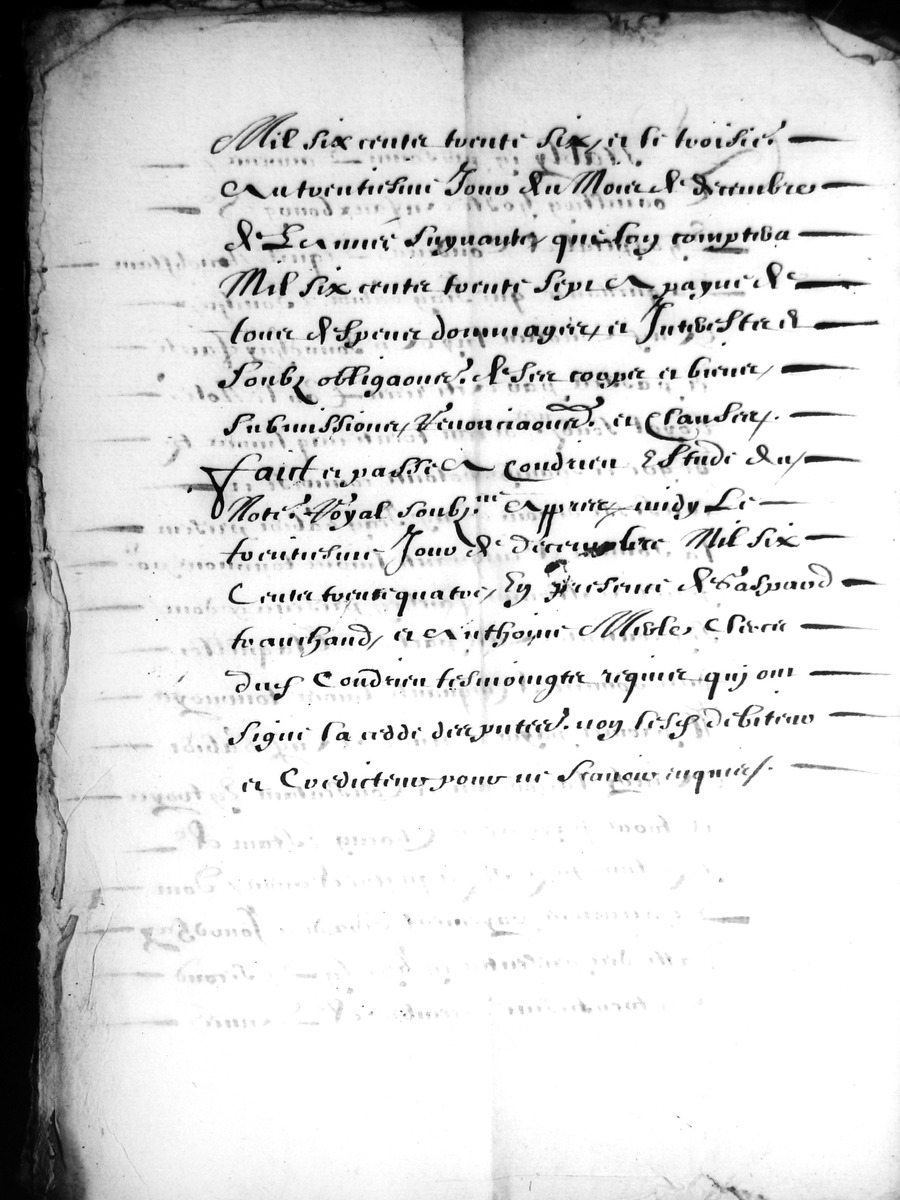 Mil six centz trente six, et le troisie.
Au trentiesme Jour du Mois de decembre
de L'Année suyvante, que lon comptera
Mil six centz trente sept A payne de
tous despens dommages, et Interestz et
soubz obligaones. de ses corps et biens,
submissions, Renonciaones. et Clauses,.
faict et passé A Condrieu Estude du
Note. Royal soubz.ne Appres midy Le
trentiesme Jour de decembre Mil six
Centz trente quatre, En presence de Gaspard
tranchand, et Anthoine Clercz
dud Condrieu tesmoingtz requis quj ont
signé la cedde des putes. non lesd debiteur
et Crediteur pour ne scavoir enquis.